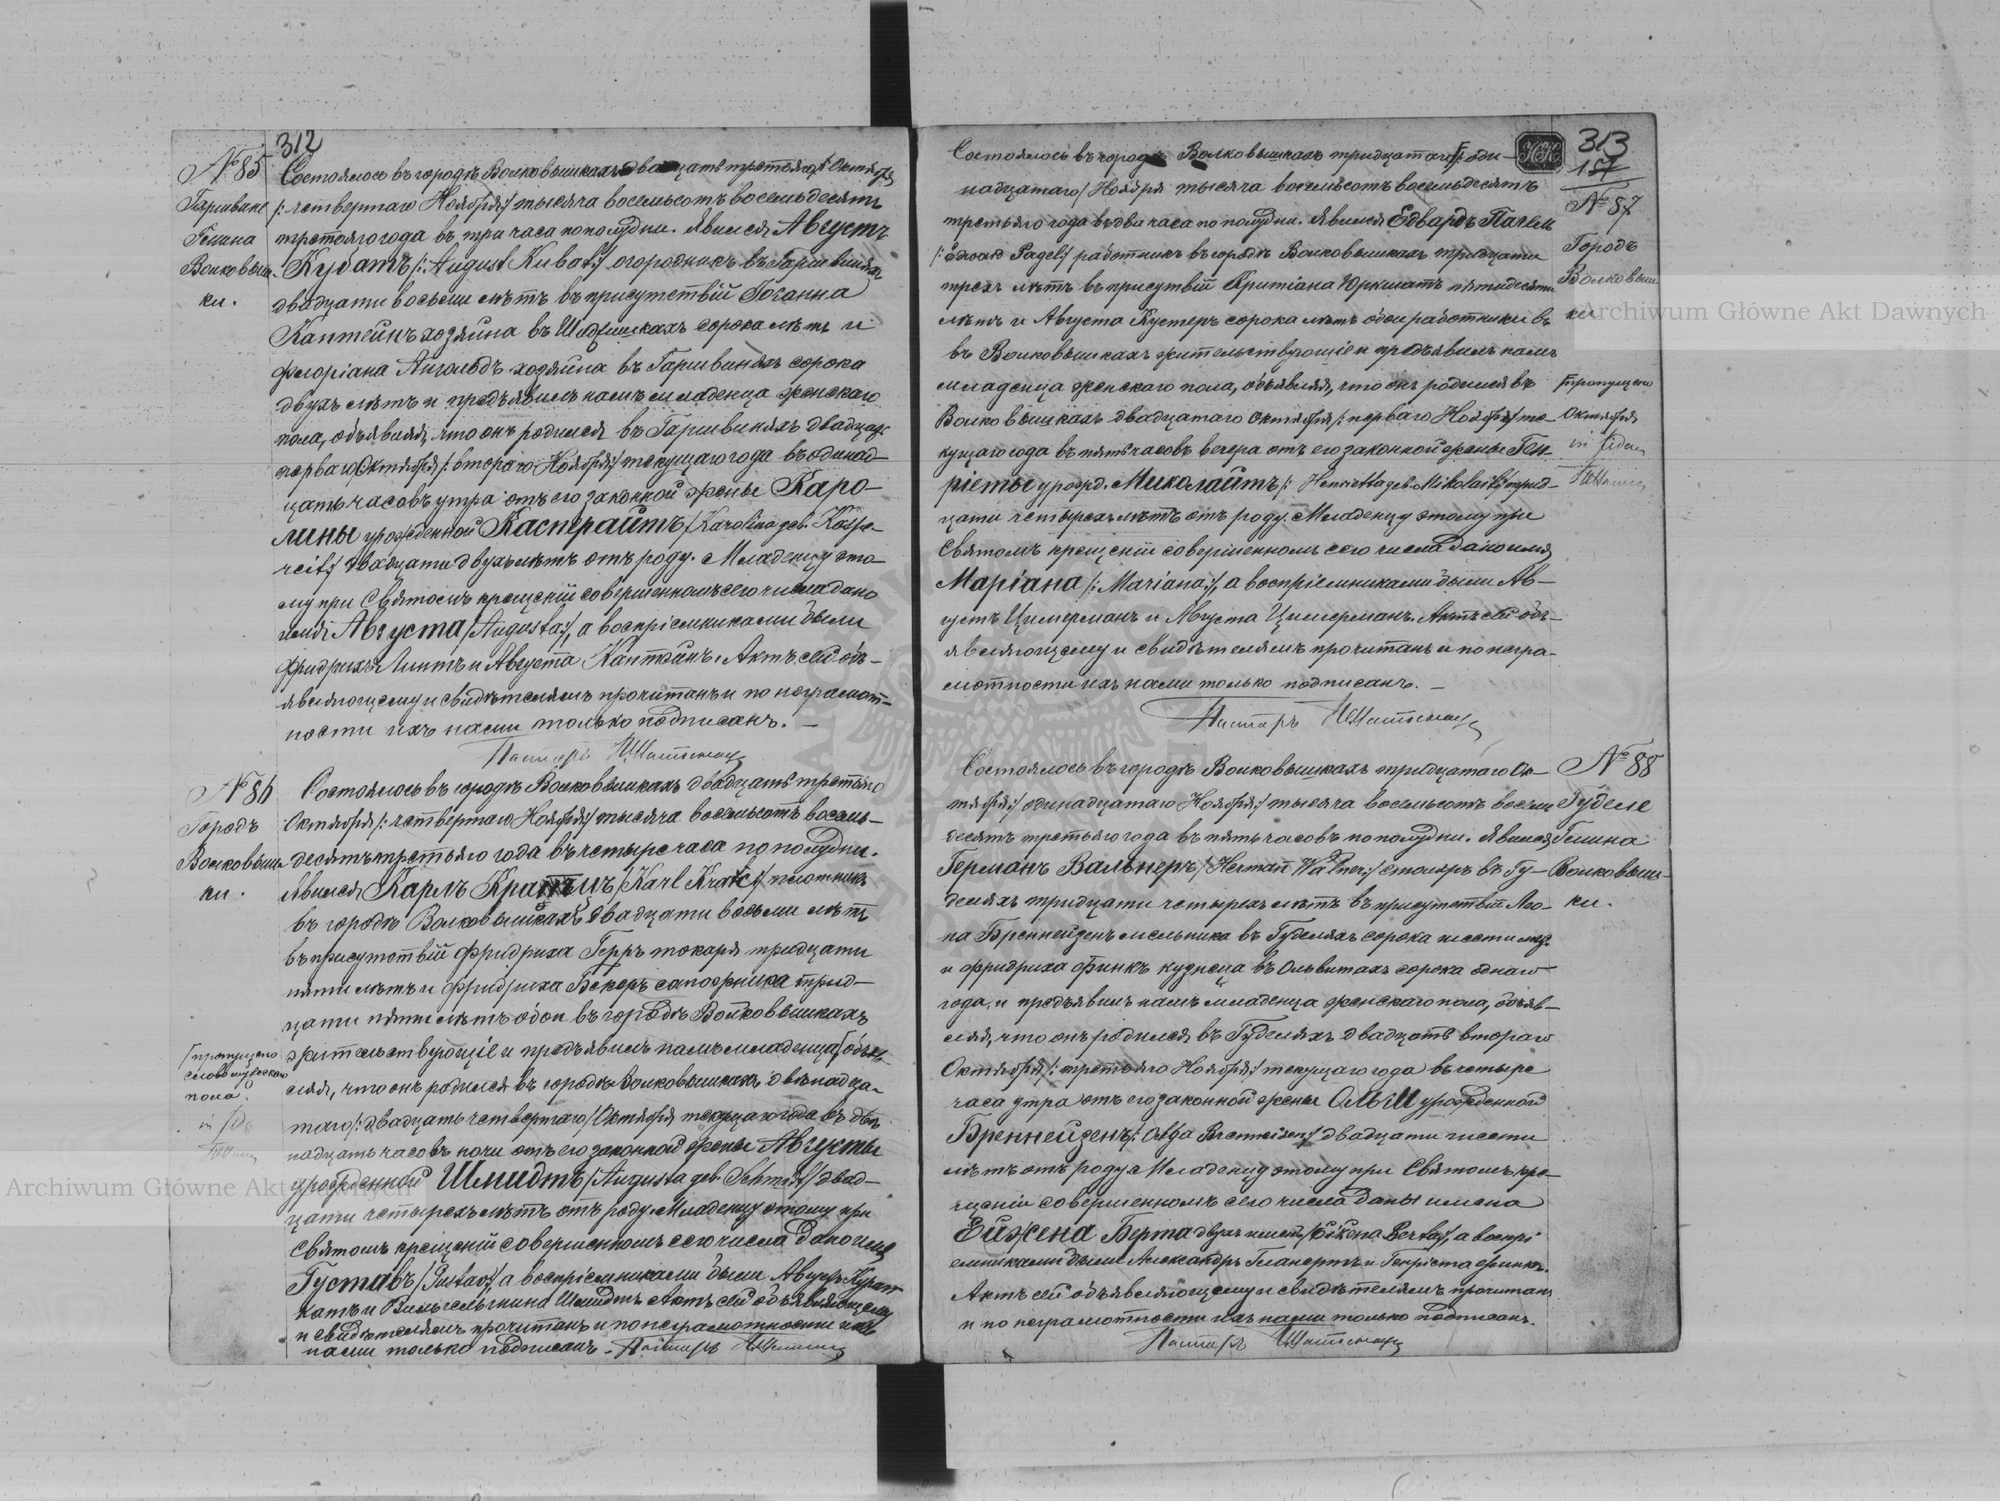 312
№ 85
Гаршвине
Гмина
Волковыш-
ки.
Состоялось въ городѣ Волковышкахъ двадцать третьяго Октября
/: четвертаго Ноября :/ тысяча восемьсотъ восемьдесятъ
третьяго года въ три часа пополудни. Явился Августъ
Кубатъ /: August Kubat :/ огородникъ въ Гаршвиняхъ
двадцати восьми лѣтъ въ присутствіи Іоганна
Каптейнъ хозяина въ сорока лѣтъ и
Флоріана Ангольдъ хозяина въ Гаршвиняхъ сорока
двухъ лѣтъ и предъявилъ намъ младенца женскаго
пола, объявляя, что онъ родился въ Гаршвиняхъ двадцать
перваго Октября /: втораго Ноября :/ текущаго года въ одинад-
цать часовъ утра отъ его законной жены Каро-
лины урожденной Касперайтъ /: Karolina geb. Kaspe-
reit :/ двадцати двухъ лѣтъ отъ роду. Младенцу это-
му при Святомъ крещеніи совершенномъ сего числа дано
имя Августа /: Augusta :/, а воспріемниками были
Фридрихъ Лиитъ и Августа Каптейнъ. Актъ сей объ-
являющему и свидѣтелямъ прочитанъ и по неграмот-
ности ихъ нами только подписанъ. —
Пасторъ
№ 86
Городъ
Волковыш-
ки.
Состоялось въ городѣ Волковышкахъ двадцать третьяго
Октября /: четвертаго Ноября :/ тысяча восемьсотъ восемь-
десятъ третьяго года въ четыре часа по полудни.
Явился Карлъ Кратцъ /: Karl Kratz :/ плотникъ
въ городѣ Волковышкахъ двадцати восьми лѣтъ
въ присутствіи Фридриха Герръ токаря тридцати
пяти лѣтъ и Фридриха Бекеръ сапожника трид-
цати пяти лѣтъ обои въ городѣ Волковышкахъ
жительствующіе и предъявилъ намъ младенца объяв-
/пропущено
слово мужескаго
пола.
ляя, что онъ родился въ городѣ Волковышкахъ двѣнадца-
таго /: двадцать четвертаго :/ Октября текущаго года въ две-
надцать часовъ ночи отъ его законной жены Августы
урожденной Шмидтъ /: Augusta geb. Schmidt :/ двад-
цати четырехъ лѣтъ отъ роду. Младенцу этому при
Святомъ крещеніи совершенномъ сего числа дано имя
Густавъ /: Gustav :/, а воспріемниками были Августъ
и Вильгельмина Шмидтъ. Актъ сей объявляющему
и свидѣтелямъ прочитанъ и по неграмотности ихъ
нами только подписанъ. Пасторъ
НН
313
157
№ 87
Городъ
Волковыш-
ки
Состоялось въ городѣ Волковышкахъ тридцатаго /: оди-
надцатаго / Ноября тысяча восемьсотъ восемьдесятъ
третьяго года въ два часа по полудни. Явился Едвардъ Пагель
/: Edward Pagel :/ работникъ въ городѣ Волковышкахъ тридцати
трехъ лѣтъ въ присутвіи Критіана Юркшатъ пятидесяти
лѣтъ и Августа Кустеръ сорока лѣтъ обои работники въ
въ Волковышкахъ жительствующіе и предъявилъ намъ
младенца женскаго пола, объявляя, что онъ родился въ
/пропущено
Октября
in fidem
Волковышкахъ двадцатаго Октября /: перваго Ноября :/ те-
кущаго года въ пять часовъ вечера отъ его законной жены Ген-
ріеты урожд. Миколайтъ /: Henrietta geb. Mikolait :/ трид-
цати четырехъ лѣтъ отъ роду. Младенцу этому при
Святомъ крещеніи совершенномъ сего числа дано имя
Маріана /: Mariana :/, а воспріемниками были Ав-
густъ Цимерманъ и Августа Цимерманъ. Актъ сей объ-
являющему и свидѣтелямъ прочитанъ и по негра-
мотности ихъ нами только подписанъ. —
Пасторъ
№ 88
Гуделе
Гмина
Волковыш-
ки.
Состоялось въ городѣ Волковышкахъ тридцатаго Ок-
тября /: одинадцатаго Ноября :/ тысяча восемьсотъ восемь
десятъ третьяго года въ пять часовъ по полудни. Явился
Германъ Вальнеръ /: Herman Walner :/ столяръ въ Гу-
деляхъ тридцати четырехъ лѣтъ въ присутствіи Лео-
на Бреннейзенъ мельника въ Гуделяхъ сорока шести лѣтъ
и Фридриха Финкъ кузнеца въ Ольвитахъ сорока однаго
года, и предъявилъ намъ младенца женскаго пола, объяв-
ляя, что онъ родился въ Гуделяхъ двадцать втораго
Октября /: третьяго Ноября :/ текущаго года въ четыре
часа утра отъ его законной жены Ольги урожденной
Бреннейзенъ /: Olga Brenneisen :/ двадцати шести
лѣтъ отъ роду. Младенцу этому при Святомъ кре-
щеніи совершенномъ сего числа даны имена
Ейжена Берта двухъ именъ / Berta :/, а воспрі
емниками были Александръ Гланертъ и Генріета Финкъ.
Актъ сей объявляющему и свидѣтелямъ прочитанъ
и по неграмотности ихъ нами только подписанъ.
Пасторъ
Archiwum Główne Akt Dawnych
Archiwum Główne Akt Dawnych